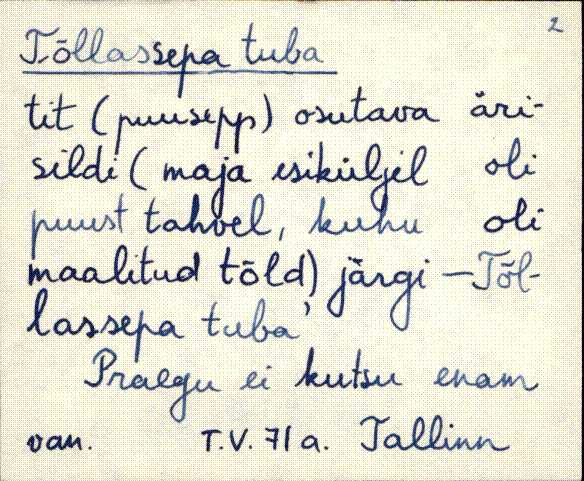 2
Tõllassepa tuba
tit (puusepp) osutava äri-
sildi (maja esiküljel oli
puust tahvel, kuhu oli
maalitud tõld) järgi – Tõl-
lassepa tuba'
Praegu ei kutsu enam
van. T.V. 71 a. Tallinn